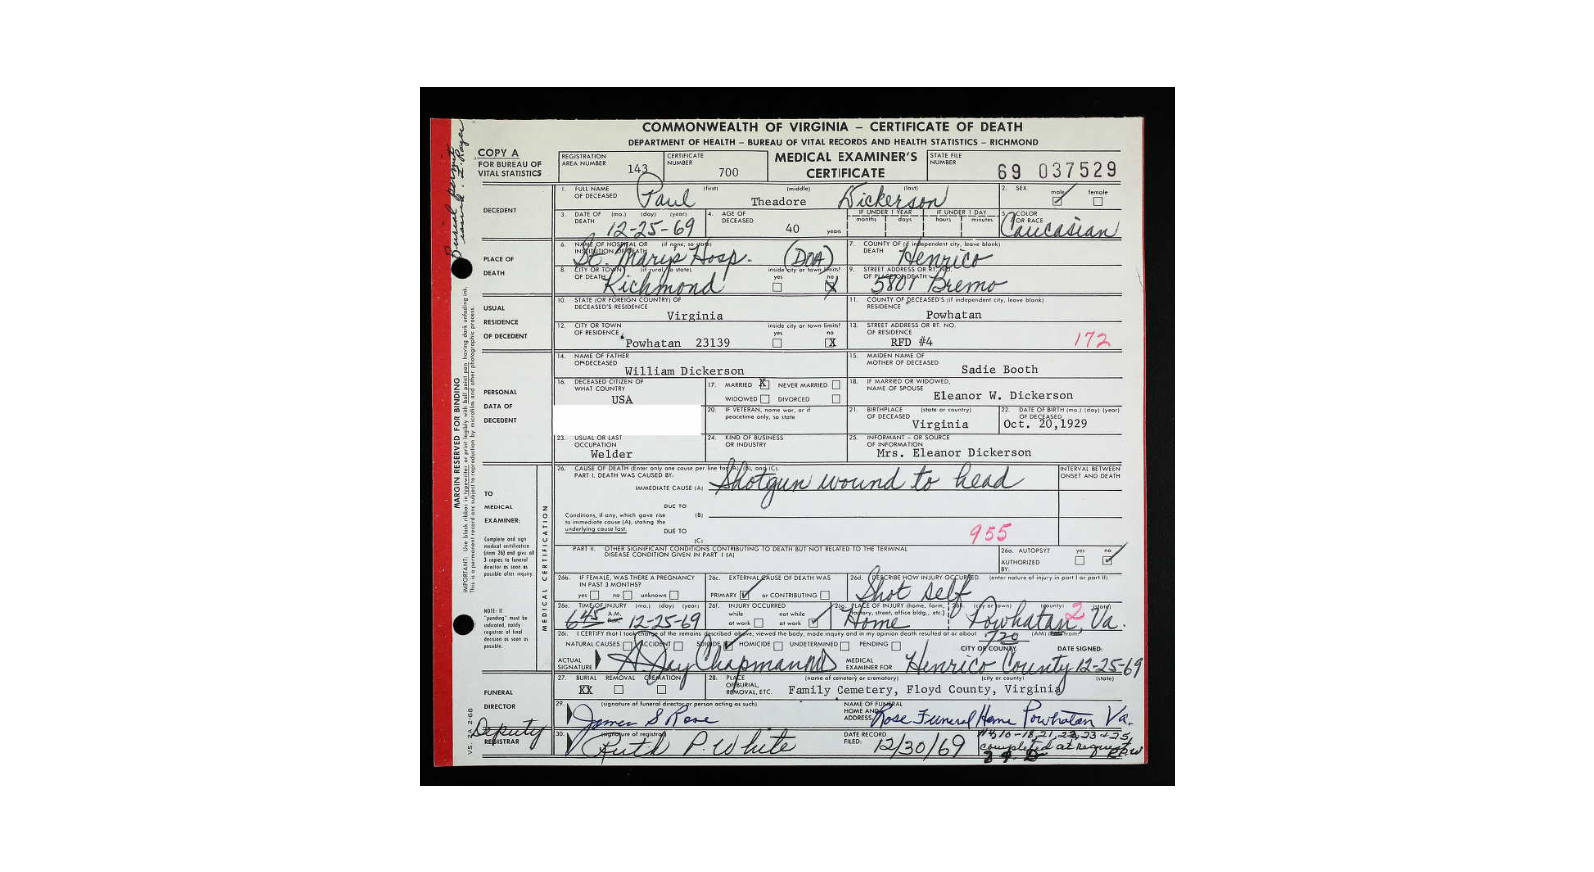 COMMONWEALTH OF VIRGINIA – CERTIFICATE OF DEATH
DEPARTMENT OF HEALTH – BUREAU OF VITAL RECORDS AND HEALTH STATISTICS – RICHMOND
COPY A
FOR BUREAU OF
VITAL STATISTICS
REGISTRATION
AREA NUMBER 143
CERTIFICATE
NUMBER 700
MEDICAL EXAMINER'S
CERTIFICATE
STATE FILE
NUMBER 69 037529
DECEDENT
1. FULL NAME
OF DECEASED (first) (middle) (last)
Paul Theadore Dickerson
2. SEX male female
3. DATE OF (mo.) (day) (year)
DEATH 12-25-69
4. AGE OF
DECEASED 40 years
IF UNDER 1 YEAR IF UNDER 1 DAY
months days hours minutes
5. COLOR
OR RACE Caucasian
PLACE OF
DEATH
6. NAME OF HOSPITAL OR (if none, so state)
INSTITUTION OF DEATH
St. Mary's Hosp. (DOA)
7. COUNTY OF (if independent city, leave blank)
DEATH Henrico
8. CITY OR TOWN (if rural, so state)
OF DEATH Richmond
inside city or town limits?
yes no X
9. STREET ADDRESS OR RT. NO.
OF PLACE OF DEATH 5801 Bremo
USUAL
RESIDENCE
OF DECEDENT
10. STATE (OR FOREIGN COUNTRY) OF
DECEASED'S RESIDENCE
Virginia
11. COUNTY OF DECEASED'S (if independent city, leave blank)
RESIDENCE
Powhatan
12. CITY OR TOWN
OF RESIDENCE
Powhatan 23139
inside city or town limits?
yes no X
13. STREET ADDRESS OR RT. NO.
OF RESIDENCE RFD #4
172
PERSONAL
DATA OF
DECEDENT
14. NAME OF FATHER
OF DECEASED
William Dickerson
15. MAIDEN NAME OF
MOTHER OF DECEASED
Sadie Booth
16. DECEASED CITIZEN OF
WHAT COUNTRY
USA
17. MARRIED X NEVER MARRIED
WIDOWED DIVORCED
18. IF MARRIED OR WIDOWED,
NAME OF SPOUSE
Eleanor W. Dickerson
20. IF VETERAN, name war, or if
peacetime only, so state
21. BIRTHPLACE (state or country)
OF DECEASED
Virginia
22. DATE OF BIRTH (mo.) (day) (year)
OF DECEASED
Oct. 20,1929
23. USUAL OR LAST
OCCUPATION
Welder
24. KIND OF BUSINESS
OR INDUSTRY
25. INFORMANT – OR SOURCE
OF INFORMATION
Mrs. Eleanor Dickerson
TO
MEDICAL
EXAMINER:
Complete and sign
medical certification
(item 26) and give all
3 copies to funeral
director as soon as
possible after inquiry.
NOTE: If
"pending" must be
indicated, notify
registrar of final
decision as soon as
possible.
MEDICAL CERTIFICATION
26. CAUSE OF DEATH (Enter only one cause per line for (A), (B), and (C).
PART I. DEATH WAS CAUSED BY:
IMMEDIATE CAUSE (A) Shotgun wound to head
INTERVAL BETWEEN
ONSET AND DEATH
DUE TO
Conditions, if any, which gave rise (B)
to immediate cause (A), stating the
underlying cause last. DUE TO
(C)
955
PART II. OTHER SIGNIFICANT CONDITIONS CONTRIBUTING TO DEATH BUT NOT RELATED TO THE TERMINAL
DISEASE CONDITION GIVEN IN PART I (A)
26a. AUTOPSY yes no
AUTHORIZED
BY:
26b. IF FEMALE, WAS THERE A PREGNANCY
IN PAST 3 MONTHS?
yes no unknown
26c. EXTERNAL CAUSE OF DEATH WAS
PRIMARY or CONTRIBUTING
26d. DESCRIBE HOW INJURY OCCURRED. (enter nature of injury in part I or part II)
Shot self
26e. TIME OF INJURY (mo.) (day) (year)
6 45 A.M. 12-25-69
26f. INJURY OCCURRED
while not while
at work at work
26g. PLACE OF INJURY (home, farm,
factory, street, office bldg., etc.)
Home
26h. (city or town) (county) (state)
Powhatan, Va.
2
26i. I CERTIFY that I took charge of the remains described above, viewed the body, made inquiry and in my opinion death resulted at or about 7 20 (AM) from:
NATURAL CAUSES ACCIDENT SUICIDE HOMICIDE UNDETERMINED PENDING
CITY OR COUNTY DATE SIGNED:
ACTUAL
SIGNATURE A Jay Chapman MD
MEDICAL
EXAMINER FOR Henrico County 12-25-69
FUNERAL
DIRECTOR
27. BURIAL REMOVAL CREMATION
XX
28. PLACE
OF BURIAL,
REMOVAL, ETC. (name of cemetery or crematory) (city or county) (state)
Family Cemetery, Floyd County, Virginia
29. (signature of funeral director or person acting as such)
James S Rose
NAME OF FUNERAL
HOME AND
ADDRESS: Rose Funeral Home Powhatan Va.
Deputy
REGISTRAR
30. (signature of registrar)
Ruth P. White
DATE RECORD
FILED: 12/30/69
completed at request
RPW
MARGIN RESERVED FOR BINDING